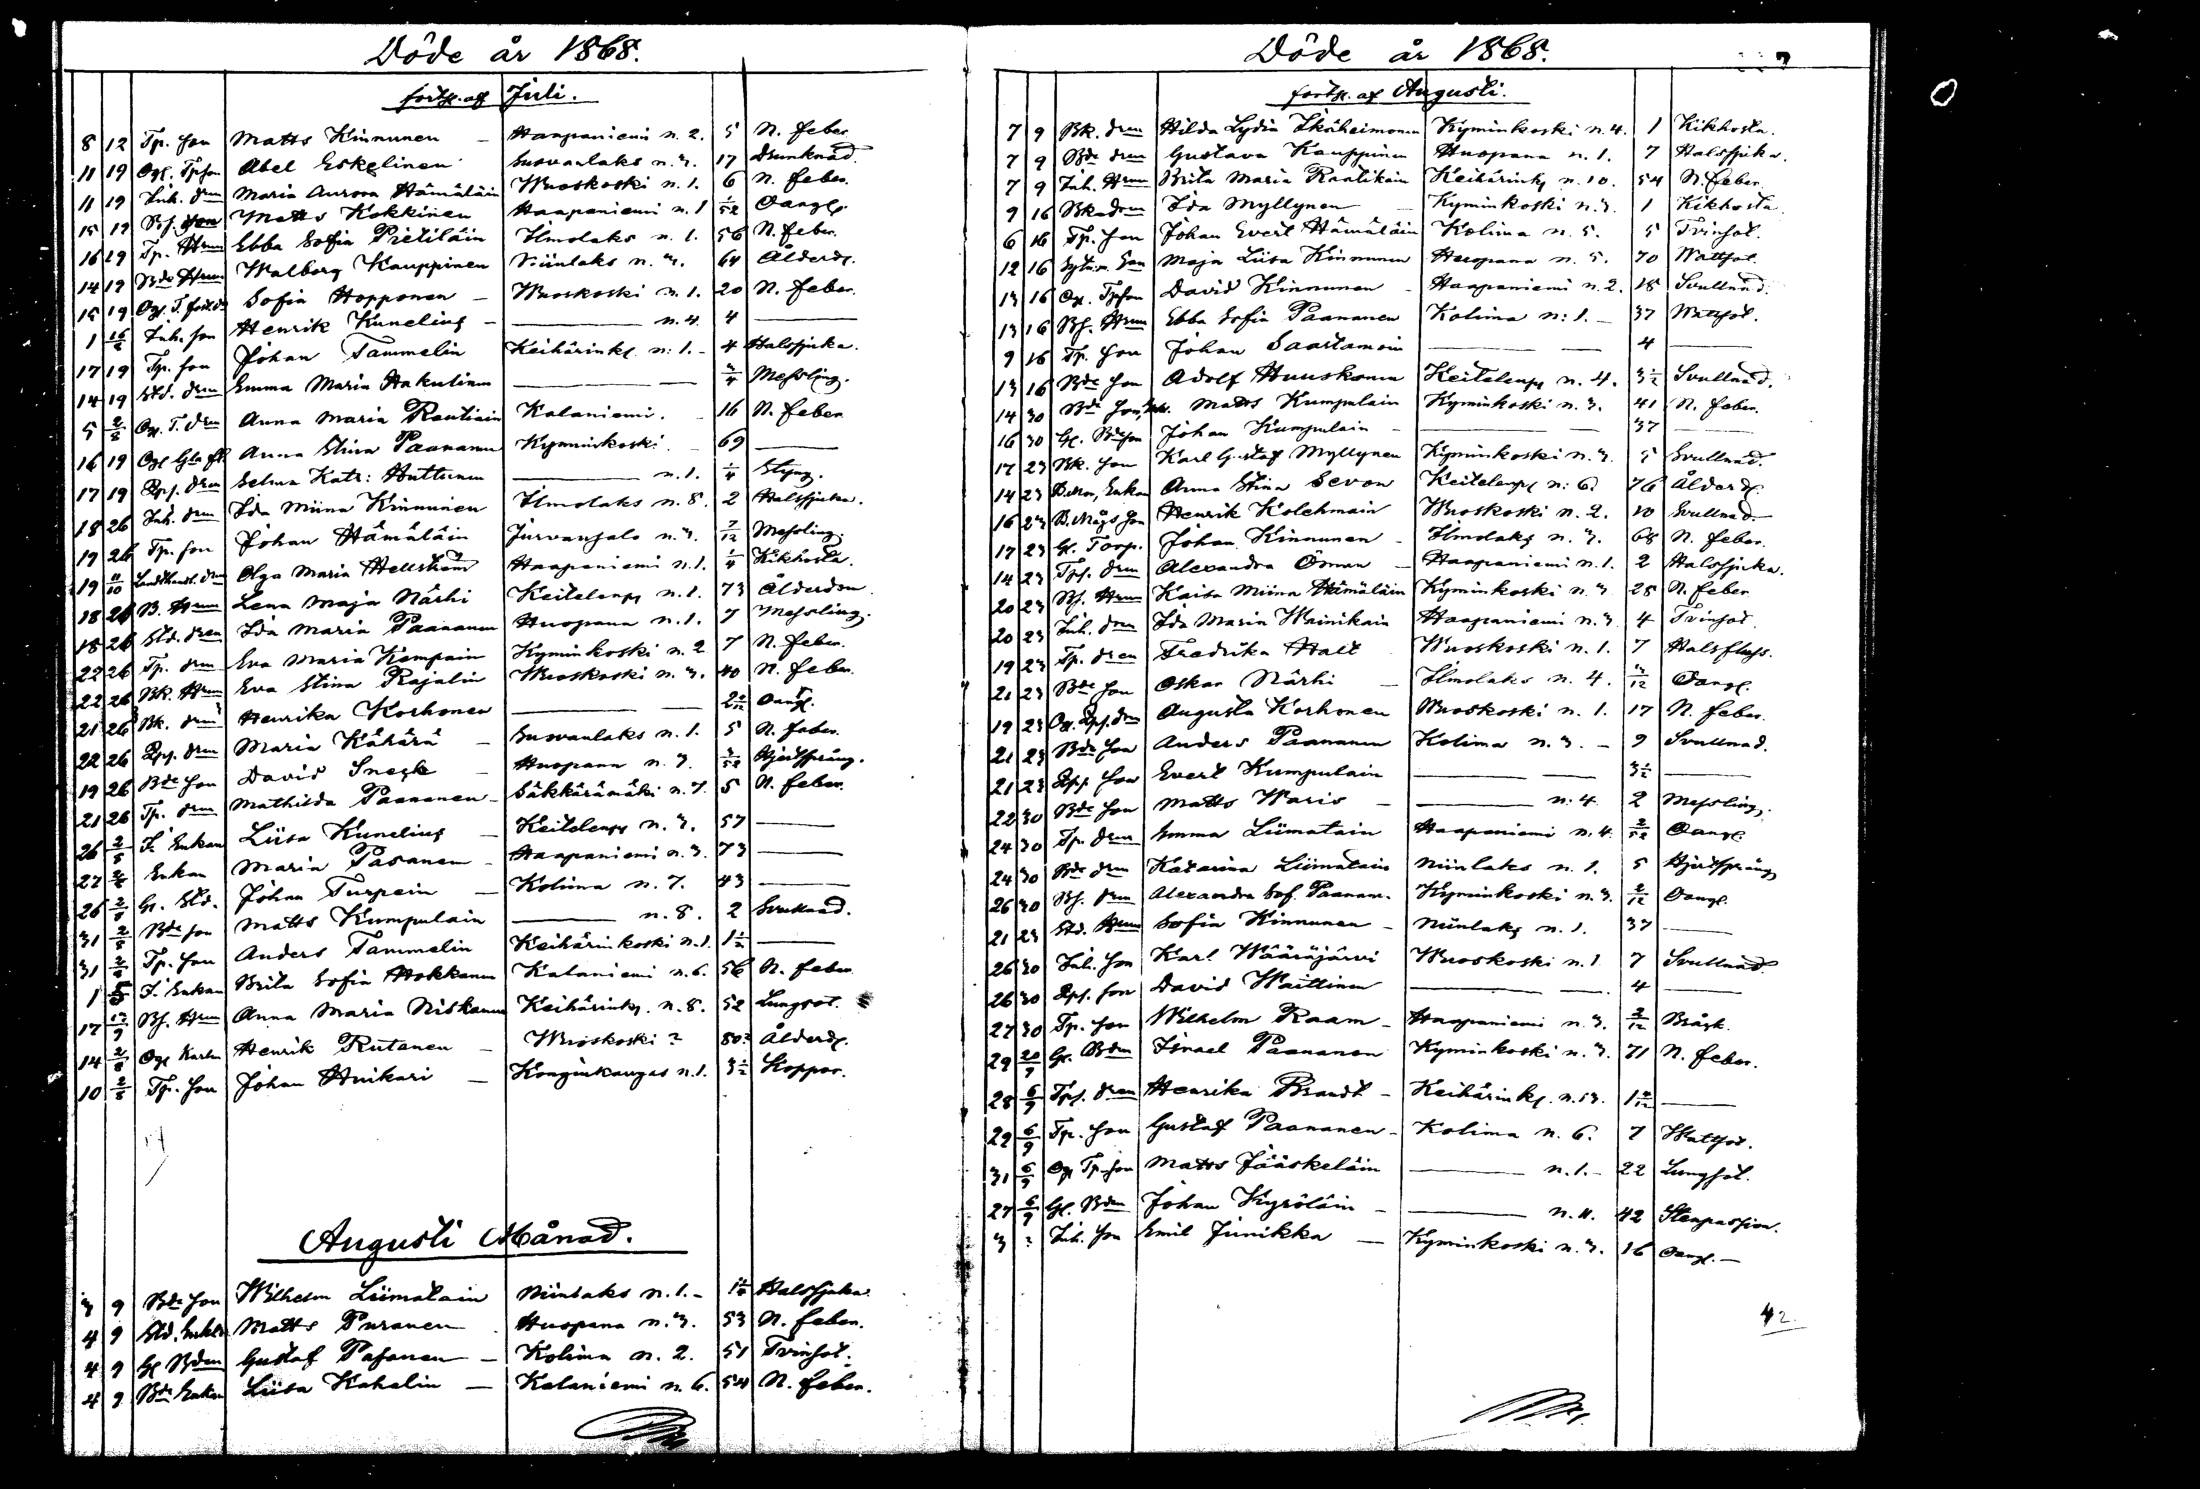 Döde år 1868.
forts. af Juli.
8 12 Tp. son Matts Kinnunen – Haapaniemi n. 2. 5 N. feber
11 19 Ogf. Tpson Abel Eskelinen Suovanlaks n. 3. 17 Drunknad.
11 19 Inh. drn Maria Aurora Hämäläin Wuoskoski n. 1. 6 N. feber.
15 19 Bf. son Matts Kokkinen Haapaniemi n. 1 1/52 Oangf.
16 19 Tp. Hrun Ebba Sofia Pietiläin Ilmolaks n. 1. 56 N. feber.
14 19 Bde Hrun Walborg Kauppinen Niinlaks n. 3. 64 Ålderd.
15 19 Sofia Hopponen – Wuoskoski n. 1. 20 N. feber.
1 16/8 Inh. son Henrik Kunelius – —— n. 4. 4 ——
17 19 Tp. son Johan Tammelin Keihärinks. n: 1. – 4 Halssjuka.
14 19 Std. drn Emma Maria Hakulinen —— 3/4 Messling.
5 2/8 Og. T. drn Anna Maria Rautiain Kalaniemi. – 16 N. feber
16 19 Anna Stina Paananen Kyminkoski – 69 ——
17 19 drn Selma Katr: Huttunen —— n. 1. 1/4 Slag.
18 26 Inh. drn Ida Miina Kinnunen Ilmolaks n. 8. 2 Halssjuka.
19 26 Tp. son Johan Hämäläin Jurvansalo n. 3. 7/12 Messling
19 11/10 Landthandl. drn Olga Maria Hellström Haapaniemi n. 1. 1/4 Kikhosta.
18 26 B. Hrun Lena Maja Närhi Keitelenps n. 1. 73 Ålderdom
18 26 Std. dren Ida Maria Paananen Huopana n. 1. 7 Messling.
22 26 Tp. drn Eva Maria Kempain Kyminkoski n. 2 7 N. feber.
22 26 Bk. Hrun Eva Stina Rajalin Wuoskoski n. 3. 40 N. feber.
21 26 Bk. drn Henrika Korhonen —— 2 2/12 Oangf.
22 26 drn Maria Kähärä – Suovanlaks n. 1. 5 N. feber.
19 26 Bde son David Sneck – Huopana n. 3. 3/52 Hjertsprång.
21 26 Tp. drn Mathilda Paananen – Säkkärämäki n. 7. 5 N. feber.
26 2/8 F. Enkan Liisa Kunelius – Keitelenps n. 3. 57 ——
27 2/8 Enkan Maria Pasanen – Haapaniemi n. 3. 73 ——
26 2/8 Gl. Std. Johan Turpein – Kolima n. 7. 43 ——
31 2/8 Bde son Matts Kumpulain —— n. 8. 2 Svullnad.
31 2/8 Tp. son Anders Tammelin Keihärinkoski n. 1. 1 1/2 ——
1 F. Enkan Brita Sofia Hokkanen Kalaniemi n. 6. 56 N. feber.
17 Bf. Hrun Anna Maria Niskanen Keihärinks. n. 8. 52 Lungsot.
14 2/8 Henrik Rutanen – Wuoskoski ? 80? Ålderd.
10 2/8 Tp. son Johan Huikari – Konginkangas n. 1. 3 1/2 Koppor.
Augusti Månad.
3 9 Bde son Wilhelm Liimatain Niinlaks n. 1. – Halssjuka.
4 9 Std. Enkl. Matts Puranen Huopana n. 3. 53 N. feber.
4 9 Gl Bden Gustaf Pasanen – Kolima n. 2. 51 Tvinsot.
4 9 Bde Enkan Liisa Kahelin – Kalaniemi n. 6. 54 N. feber.
Döde år 1868.
forts. af Augusti.
7 9 Bk. dren Hilda Lydia Ikäheimonen Kyminkoski n. 4. 1 Kikhosta.
7 9 Bde dren Gustava Kauppinen Huopana n. 1. 7 Halssjuka.
7 9 Inh. Hrun Brita Maria Raatikain Keihärinks n. 10. 54 N. feber.
9 16 Bk. dren Ida Myllynen – Kyminkoski n. 3. 1 Kikhosta
6 16 Tp. son Johan Evert Hämäläin Kolima n. 5. 5 Tvinsot.
12 16 Maja Liisa Kinnunen Huopana n. 5. 70 Wattsot.
13 16 Og. Tpson David Kinnunen – Haapaniemi n. 2. 18 Svullnad.
13 16 Bf. Hrun Ebba Sofia Paananen Kolima n: 1. – 37 Wattsot.
9 16 Tp. son Johan Saastamoin —— 4 ——
13 16 Bde son Adolf Huuskonen Keitelenps n. 4. 3 1/2 Svullnad.
14 30 Bde son, Matts Kumpulain Kyminkoski n. 3. 41 N. feber.
16 30 Gl. Bdeson Johan Kumpulain – —— 37 ——
17 23 Bk. son Karl Gustaf Myllynen Kyminkoski n. 3. 5 Svullnad.
14 23 Enkan Anna Stina Sevon Keitelenps n: 6. 76 Ålderd.
16 23 B. Mågs son Henrik Kolehmain Wuoskoski n. 2. 10 Svullnad.
17 23 Gl. Torp. Johan Kinnunen – Ilmolaks n. 3. 68 N. feber.
14 23 Tps. dren Alexandra Öman – Haapaniemi n. 1. 2 Halssjuka.
20 23 Bf. Hrun Kaisa Miina Hämäläin Kyminkoski n. 3 28 N. feber
20 23 Inh. drn Ida Maria Wainikain Haapaniemi n. 3. 4 Tvinsot.
19 23 Tp. dren Fredrika Halt Wuoskoski n. 1. 7 Halsfluss.
21 23 Bde son Oskar Närhi – Ilmolaks n. 4. 3/12 Oangf.
19 23 Augusta Korhonen Wuoskoski n. 1. 17 N. feber.
21 23 Bde son Anders Paananen Kolima n. 3. – 9 Svullnad.
21 23 son Evert Kumpulain —— 3 1/2 ——
22 30 Bde son Matts Waris – —— n. 4 2 Messling.
24 30 Tp. dren Emma Liimatain Haapaniemi n. 4. 2/52 Oangf.
24 30 Bde dren Katarina Liimatain Niinlaks n. 1. 5 Hjertsprång
26 30 Bf. dren Alexandra Sof. Paanan. Kyminkoski n. 3. 2/12 Oangf.
21 23 Std. Hrun Sofia Kinnunen – Niinlaks n. 1. 37 ——
26 30 Inh. son Karl Wääräjärvi Wuoskoski n. 1 7 Svullnad
26 30 son David Waittinen —— 4 ——
27 30 Tp. son Wilhelm Raam – Haapaniemi n. 3. 2/12 Bråck.
29 20/9 Gl. Bden Israel Paananen Kyminkoski n. 3. 71 N. feber.
28 6/9 Tps. dren Henrika Brandt – Keihärinks. n. 13. ——
29 6/9 Tp. son Gustaf Paananen – Kolima n. 6. 7 Wattsot.
31 6/9 Og Tp. son Matts Jääskeläin —— n. 1. – 22 Lungsot.
27 6/9 Gl. Bden Johan Kyröläin – —— n. 11. 42 Stenpassion.
3 ? Inh. son Emil Jinikka – Kyminkoski n. 3. 16 Oangf. –
42.